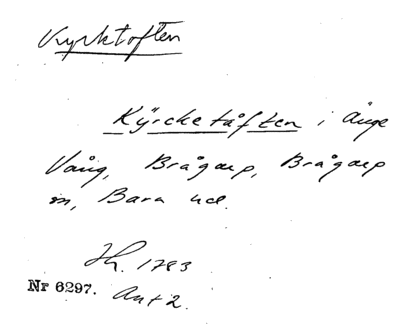 Kyrktoften
Kÿrcketåften i Ånge
Vång, Brågarp, Brågarp
sn, Bara hd.
Jb. 1783
Nr 6297. Ant 2.